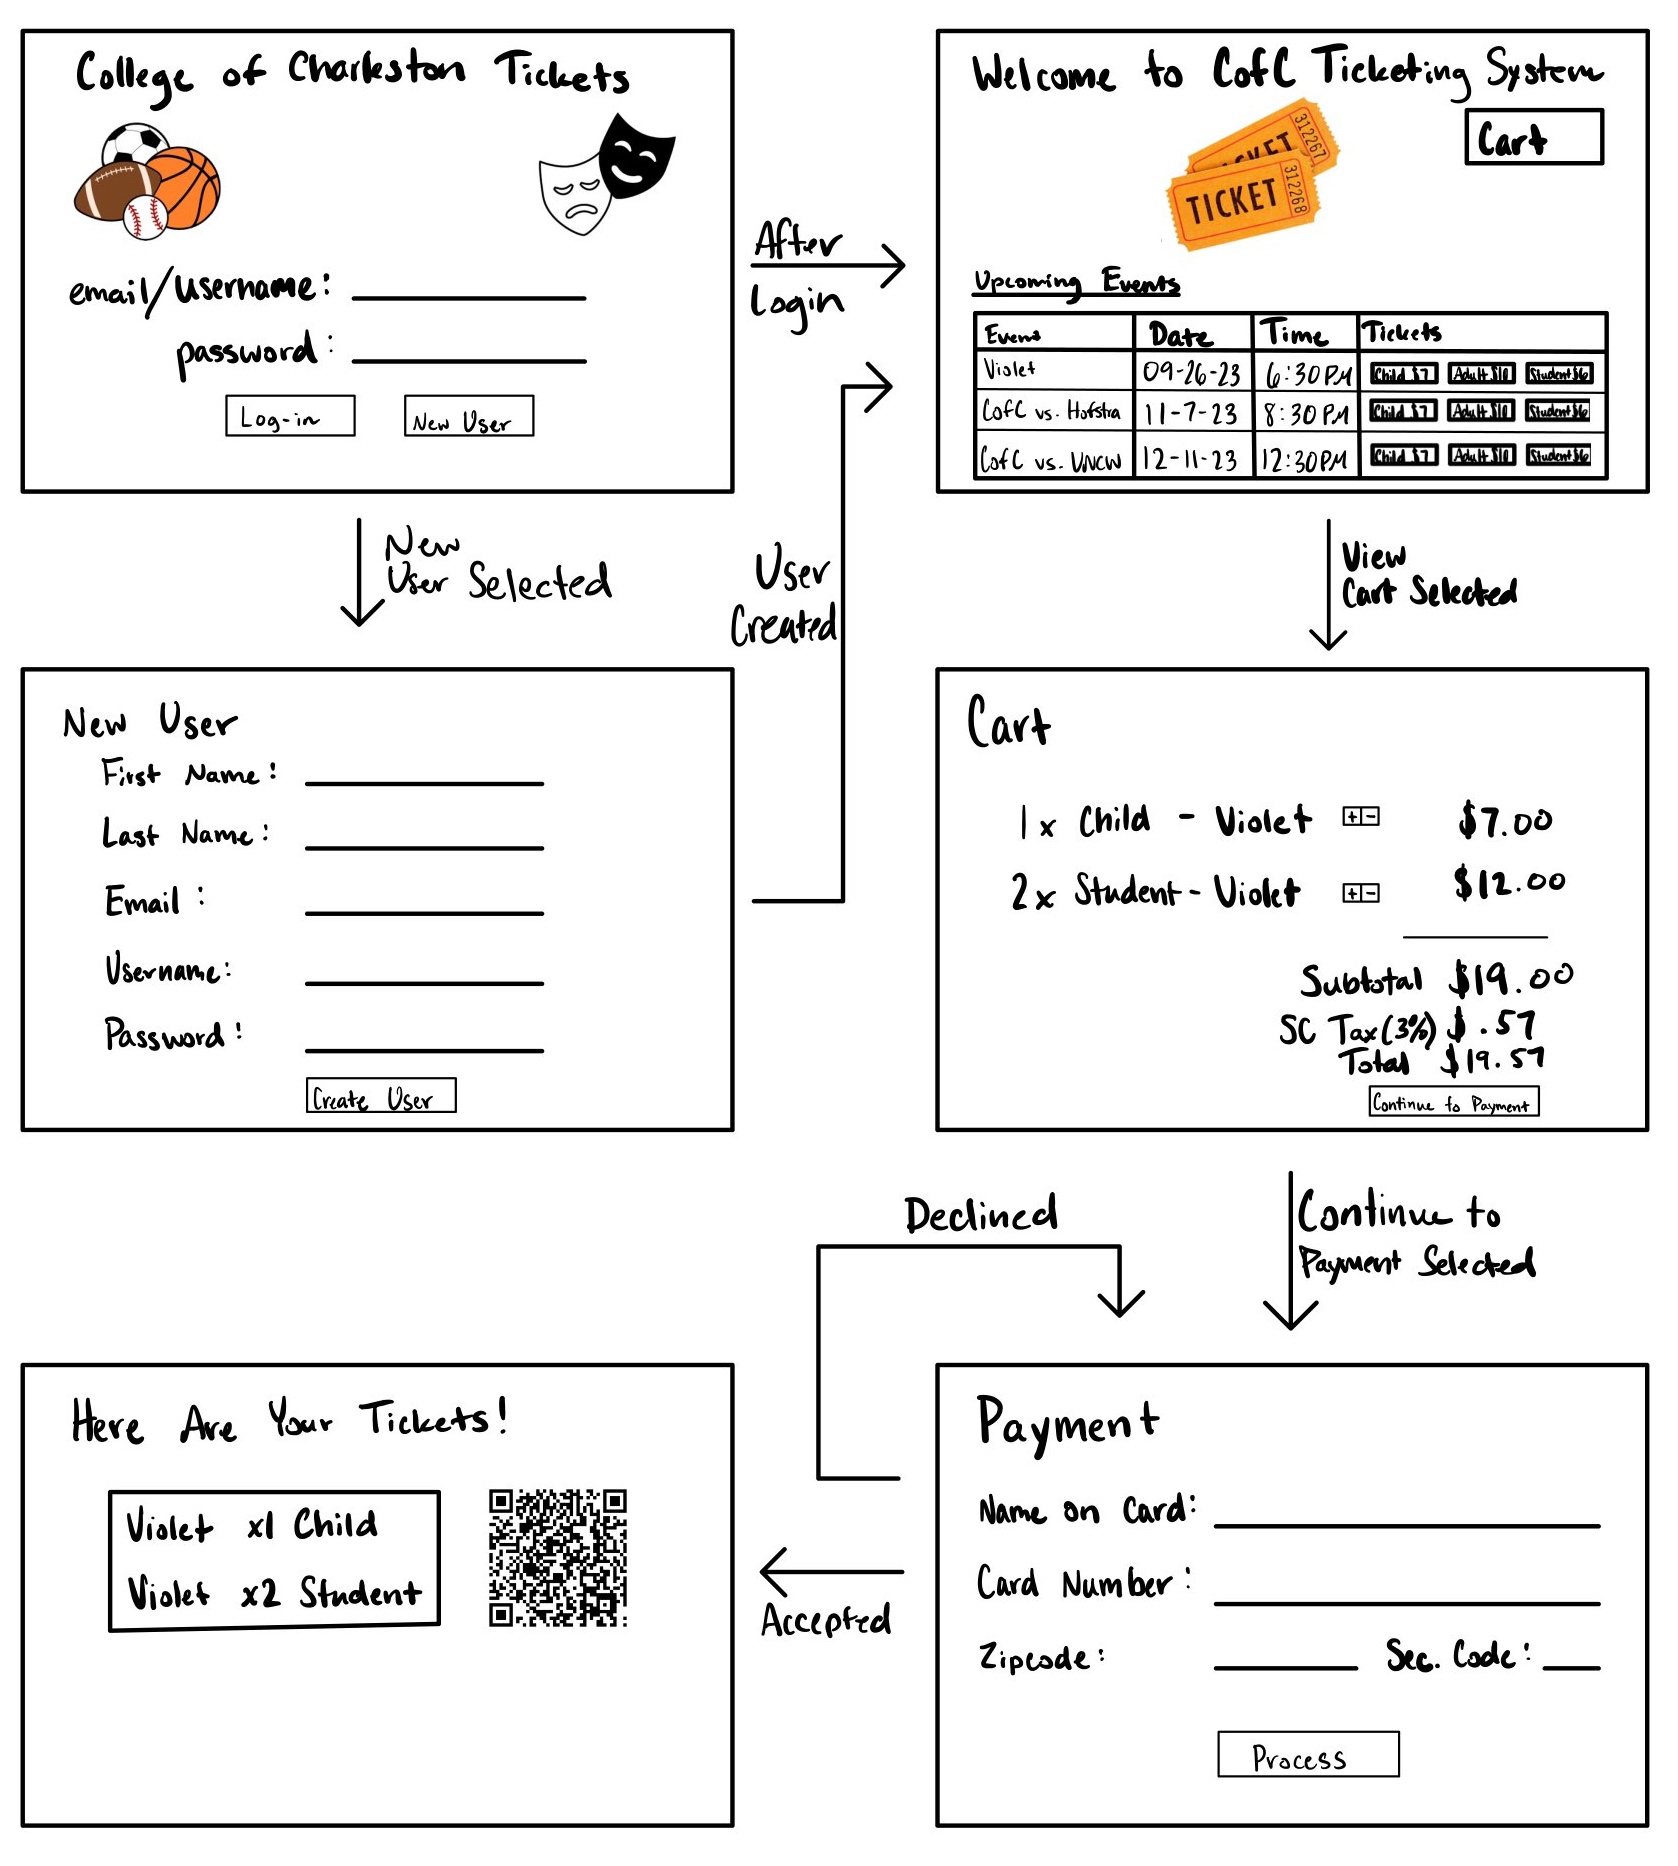 College of Charleston Tickets
email/username:
password:
Log-in
New User
After
Login
Welcome to CofC Ticketing System
TICKET 312267
TICKET 312268
Cart
Upcoming Events
Event Date Time Tickets
Violet 09-26-23 6:30PM Child $7 Adult $10 Student $6
CofC vs. Hofstra 11-7-23 8:30PM Child $7 Adult $10 Student $6
CofC vs. UNCW 12-11-23 12:30PM Child $7 Adult $10 Student $6
New
User Selected
User
Created
View
Cart Selected
New User
First Name:
Last Name:
Email:
Username:
Password:
Create User
Cart
1x Child - Violet + - $7.00
2x Student - Violet + - $12.00
Subtotal $19.00
SC Tax (3%) $.57
Total $19.57
Continue to Payment
Declined
Continue to
Payment Selected
Here Are Your Tickets!
Violet x1 Child
Violet x2 Student
Accepted
Payment
Name on Card:
Card Number:
Zipcode: Sec. Code:
Process